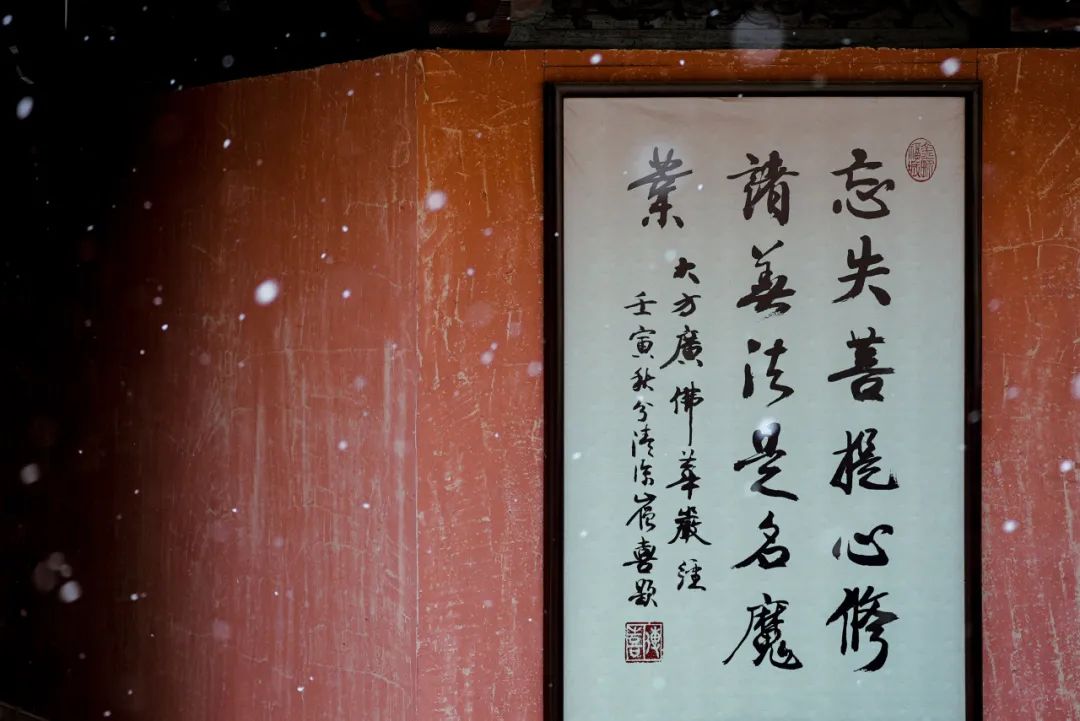 忘失菩提心修
諸善法是名魔
業
大方廣佛華嚴經
壬寅秋分清涼喜題
傳喜